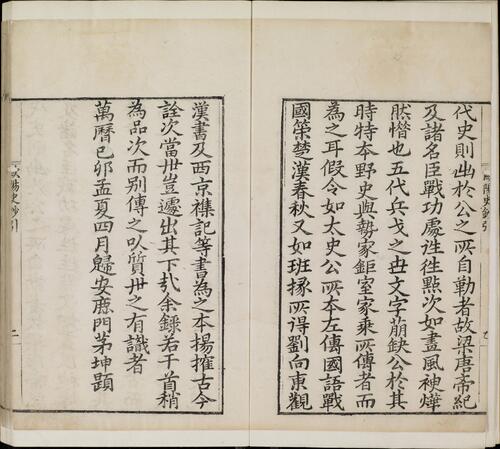 代史則出於公之所自勒者故梁唐帝紀
及諸名臣戰功處徃徃點次如畫風神燁
然惜也五代兵戈之世文字崩缺公於其
時特本野史與勢家鉅室家乘所傳者而
為之耳假令如太史公所本左傳國語戰
國策楚漢春秋又如班掾所得劉向東觀
漢書及西京襍記等書為之本揚搉古今
詮次當丗豈遽出其下㢤余錄若干首稍
為品次而别傳之㕥質丗之有識者
萬曆己卯孟夏四月歸安鹿門茅坤題